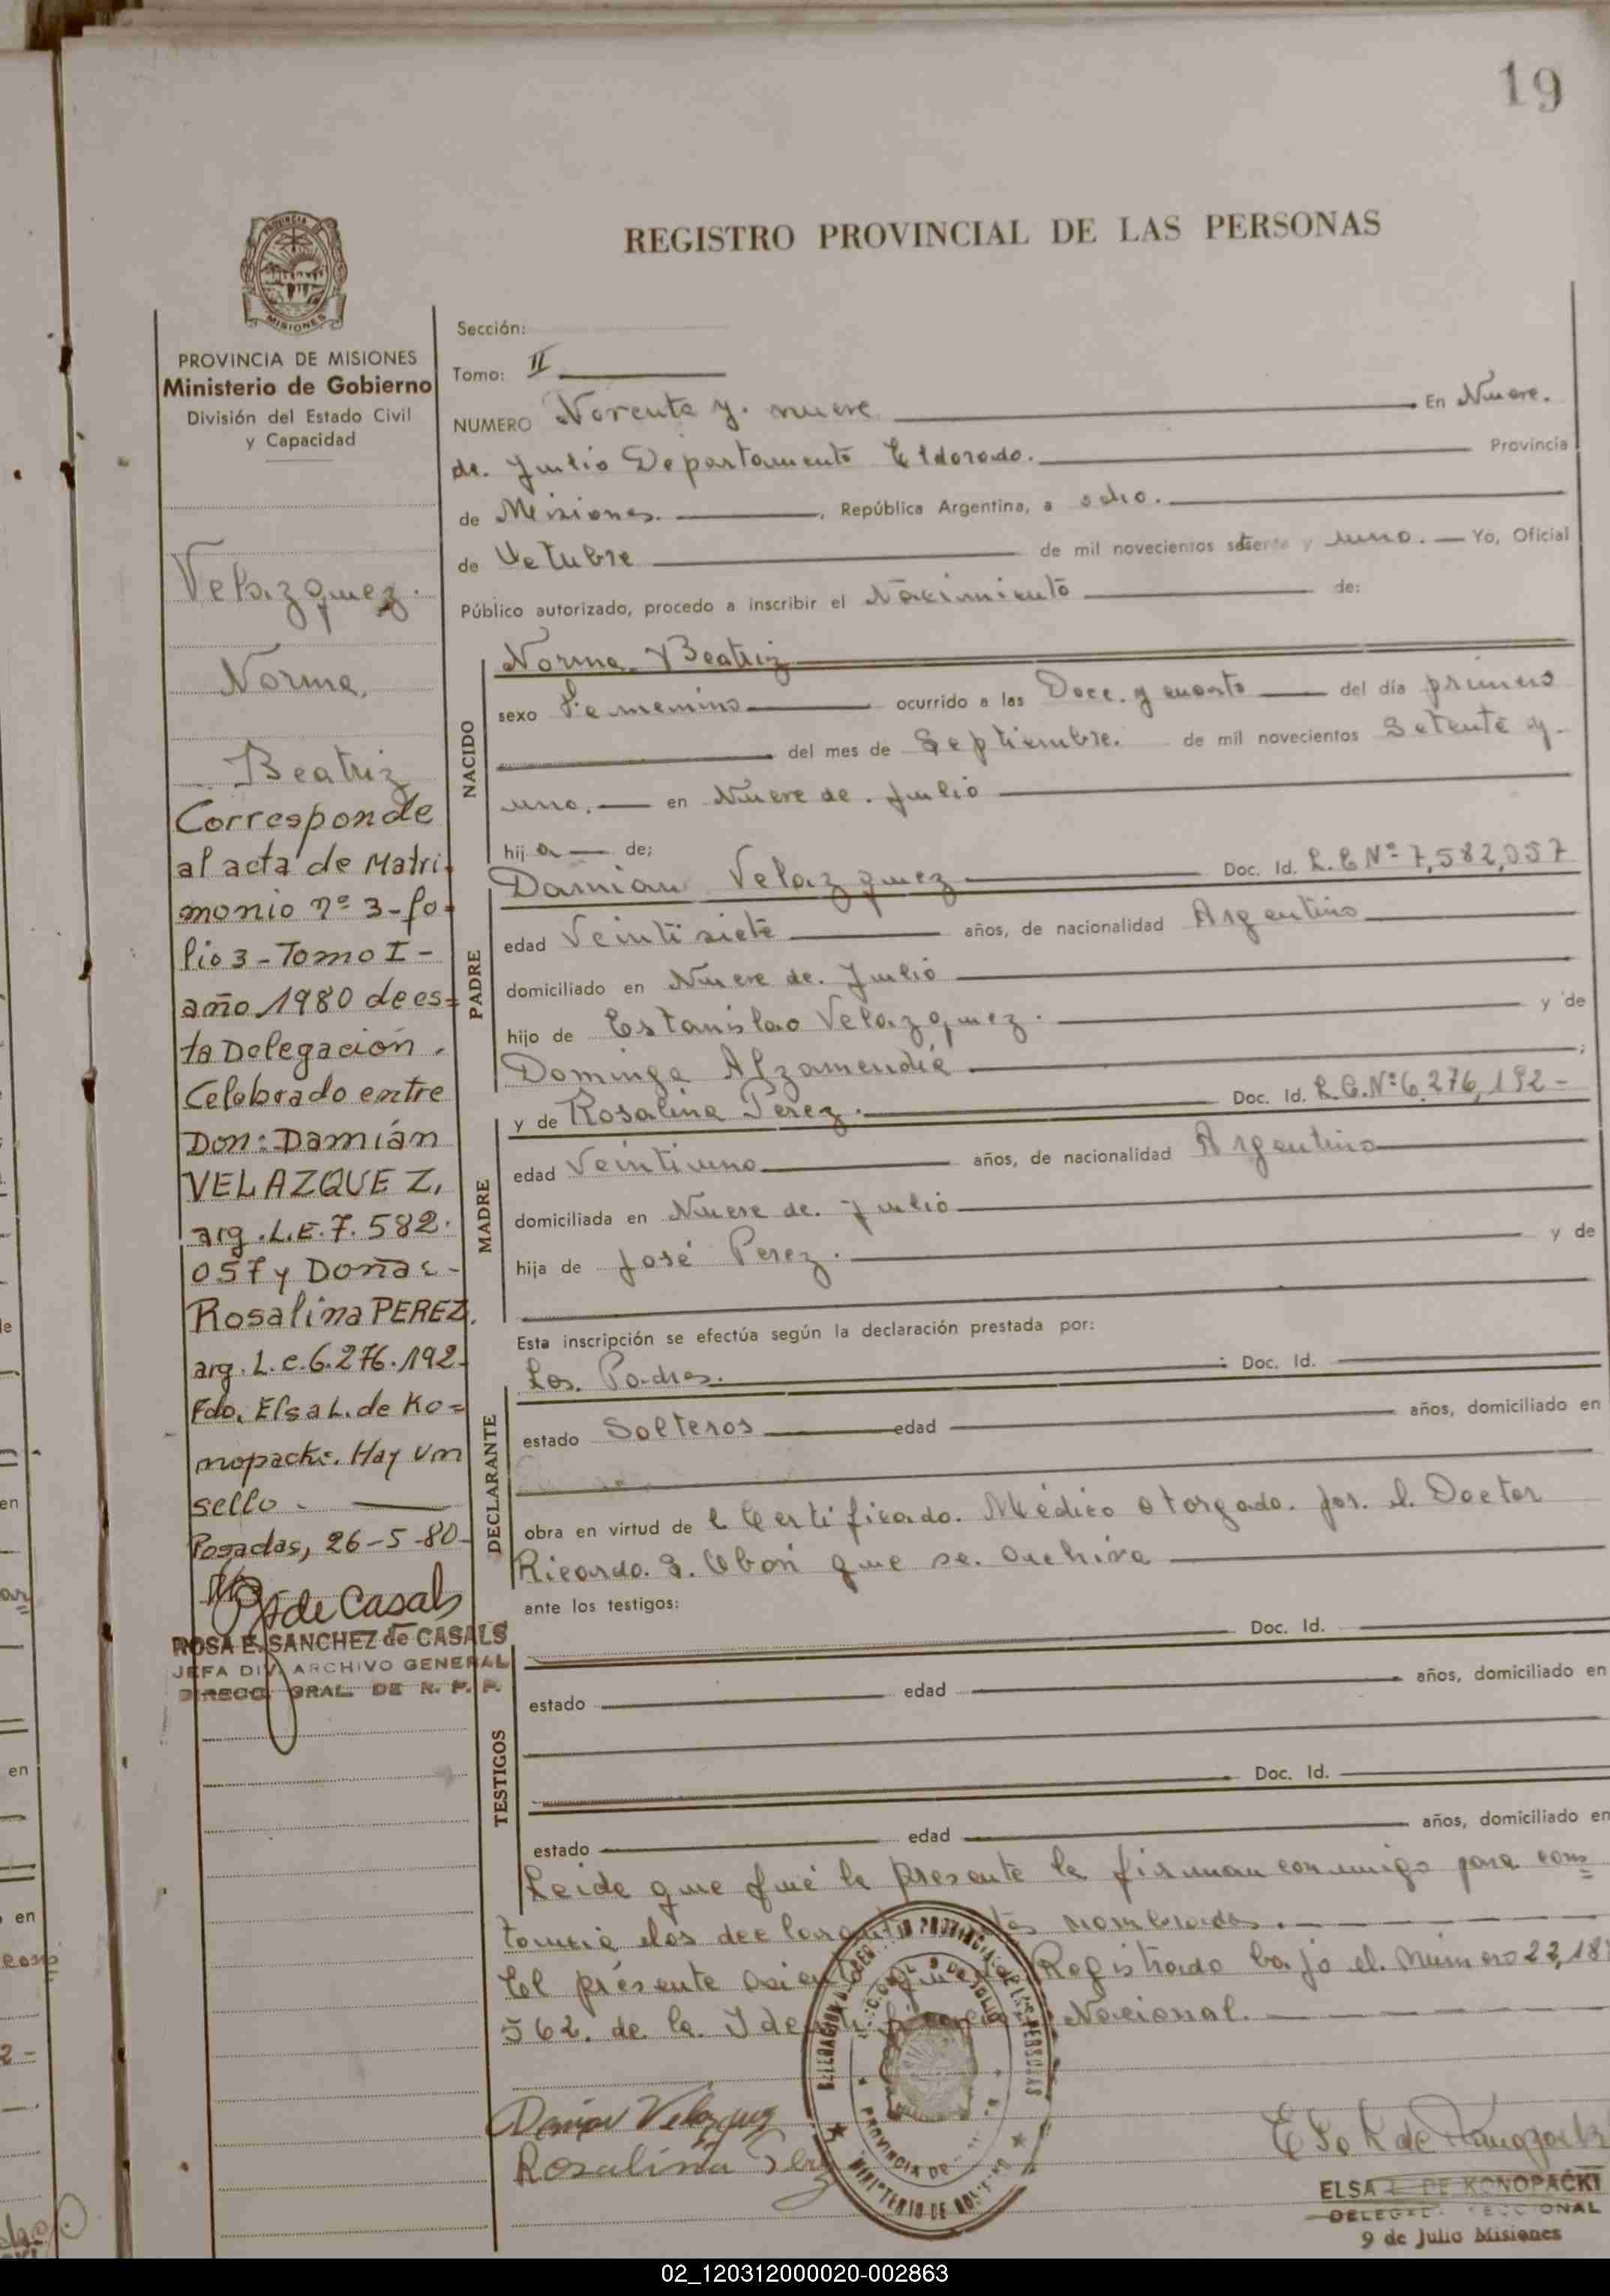 19
REGISTRO PROVINCIAL DE LAS PERSONAS
MISIONES
PROVINCIA DE MISIONES
Ministerio de Gobierno
División del Estado Civil
y Capacidad
Velazquez.
Norma,
Beatriz
Corresponde
al acta de Matri-
monio nº 3-fo=
lio 3-Tomo I-
año 1980 de es=
ta Delegación.
Celebrado entre
Don: Damián
VELAZQUEZ,
arg. L.E. 7.582.
057 y Doña:-
Rosalina PEREZ.
arg. L.C. 6.276.192-
Fdo. Elsa L. de Ko=
nopacki. Hay un
sello.
Posadas, 26-5-80-
de Casals
ROSA E. SANCHEZ de CASALS
JEFA DIV. ARCHIVO GENERAL
DIRECC. GRAL. DE R. P. P.
Sección:
Tomo: II
NUMERO Noventa y. nueve En Nueve.
de. Julio Departamento Eldorado. Provincia
de Misiones. , República Argentina, a ocho.
de Octubre de mil novecientos setenta y uno. Yo, Oficial
Público autorizado, procedo a inscribir el Nacimiento de:
NACIDO
Norma Beatriz
sexo Femenino ocurrido a las Doce. y cuarto del día primero
del mes de Septiembre. de mil novecientos Setenta y-
uno. en Nueve de. Julio
hij a de;
PADRE
Damian Velazquez Doc. Id. L.E Nº 7,582,057
edad Veintisiete años, de nacionalidad Argentino
domiciliado en Nueve de. Julio
hijo de Estanislao Velazquez. y de
Dominga Alzamendia ;
MADRE
y de Rosalina Perez. Doc. Id. L.C. Nº 6,276,192-
edad Veintiuno años, de nacionalidad Argentina
domiciliada en Nueve de. Julio
hija de José Perez. y de
Esta inscripción se efectúa según la declaración prestada por:
DECLARANTE
Los. Padres. Doc. Id.
estado Solteros edad años, domiciliado en
obra en virtud de l Certificado. Médico otorgado. por. el. Doctor
Ricardo. que se. archiva
ante los testigos:
TESTIGOS
Doc. Id.
estado edad años, domiciliado en
Doc. Id.
estado edad años, domiciliado en
Leida que fué la presente la firman conmigo para cons=
tancia los nombrados.
El presente Registrado bajo el. número 22,18
562. de la. Nacional.
Damian Velazquez
Rosalina Perez
MINISTERIO DE GOBIERNO
PROVINCIA DE
ELSA L. DE KONOPACKI
DELEGADA SECCIONAL
9 de Julio Misiones
02_120312000020-002863